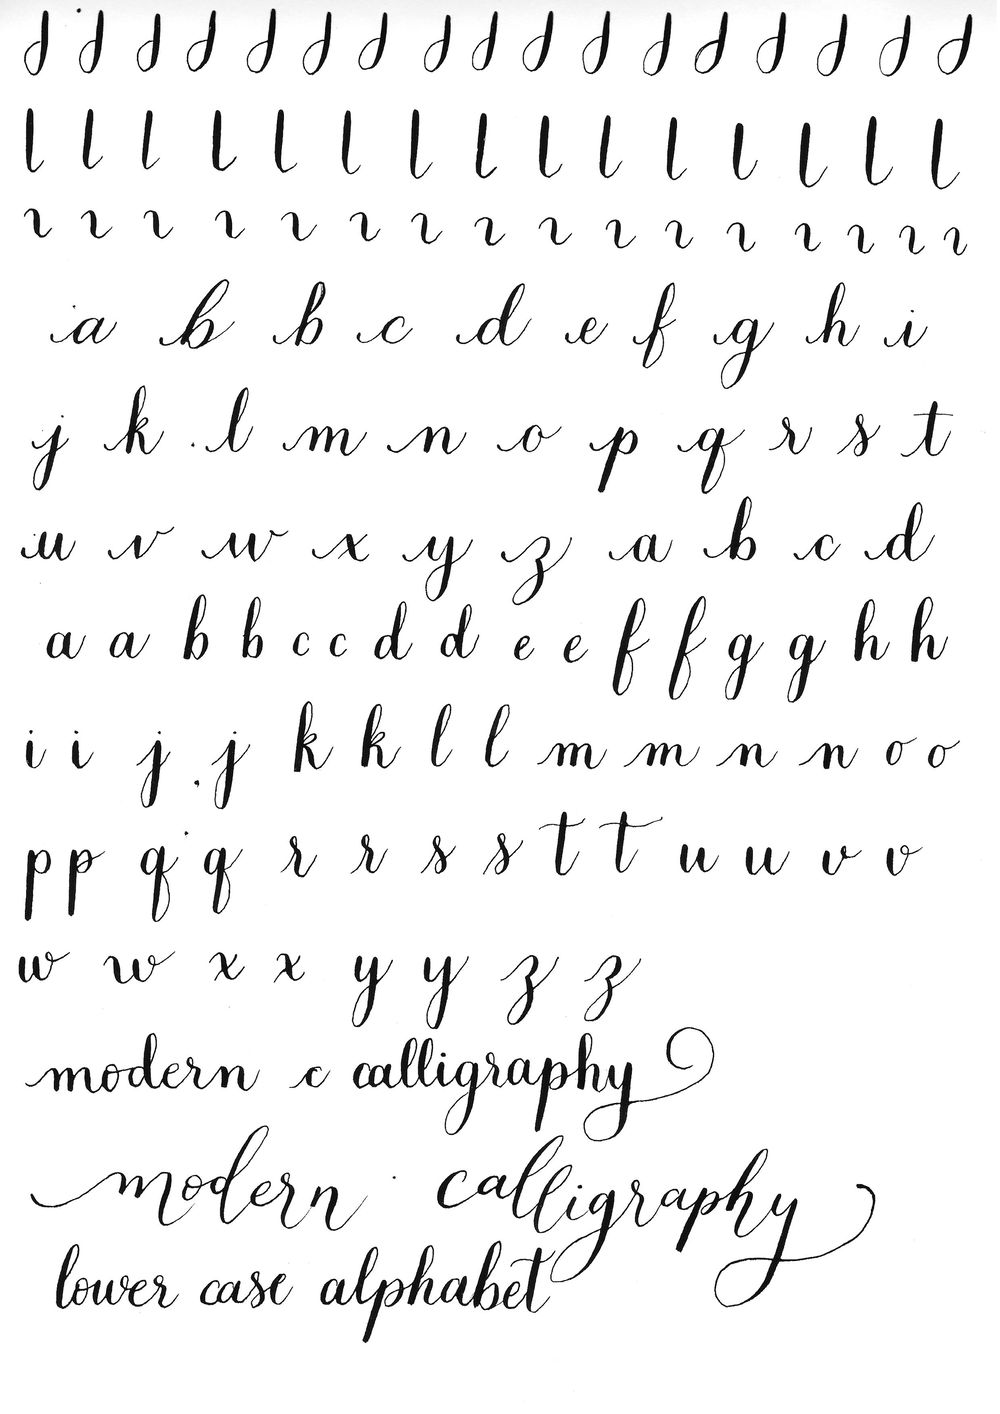 d d d d d d d d d d d d d d d d d
l l l l l l l l l l l l l l l
a b b c d e f g h i
j k l m n o p q r s t
u v w x y z a b c d
a a b b c c d d e e f f g g h h
i i j j k k l l m m n n o o
p p q q r r s s t t u u v v
w w x x y y z z
modern c calligraphy
modern calligraphy
lower case alphabet